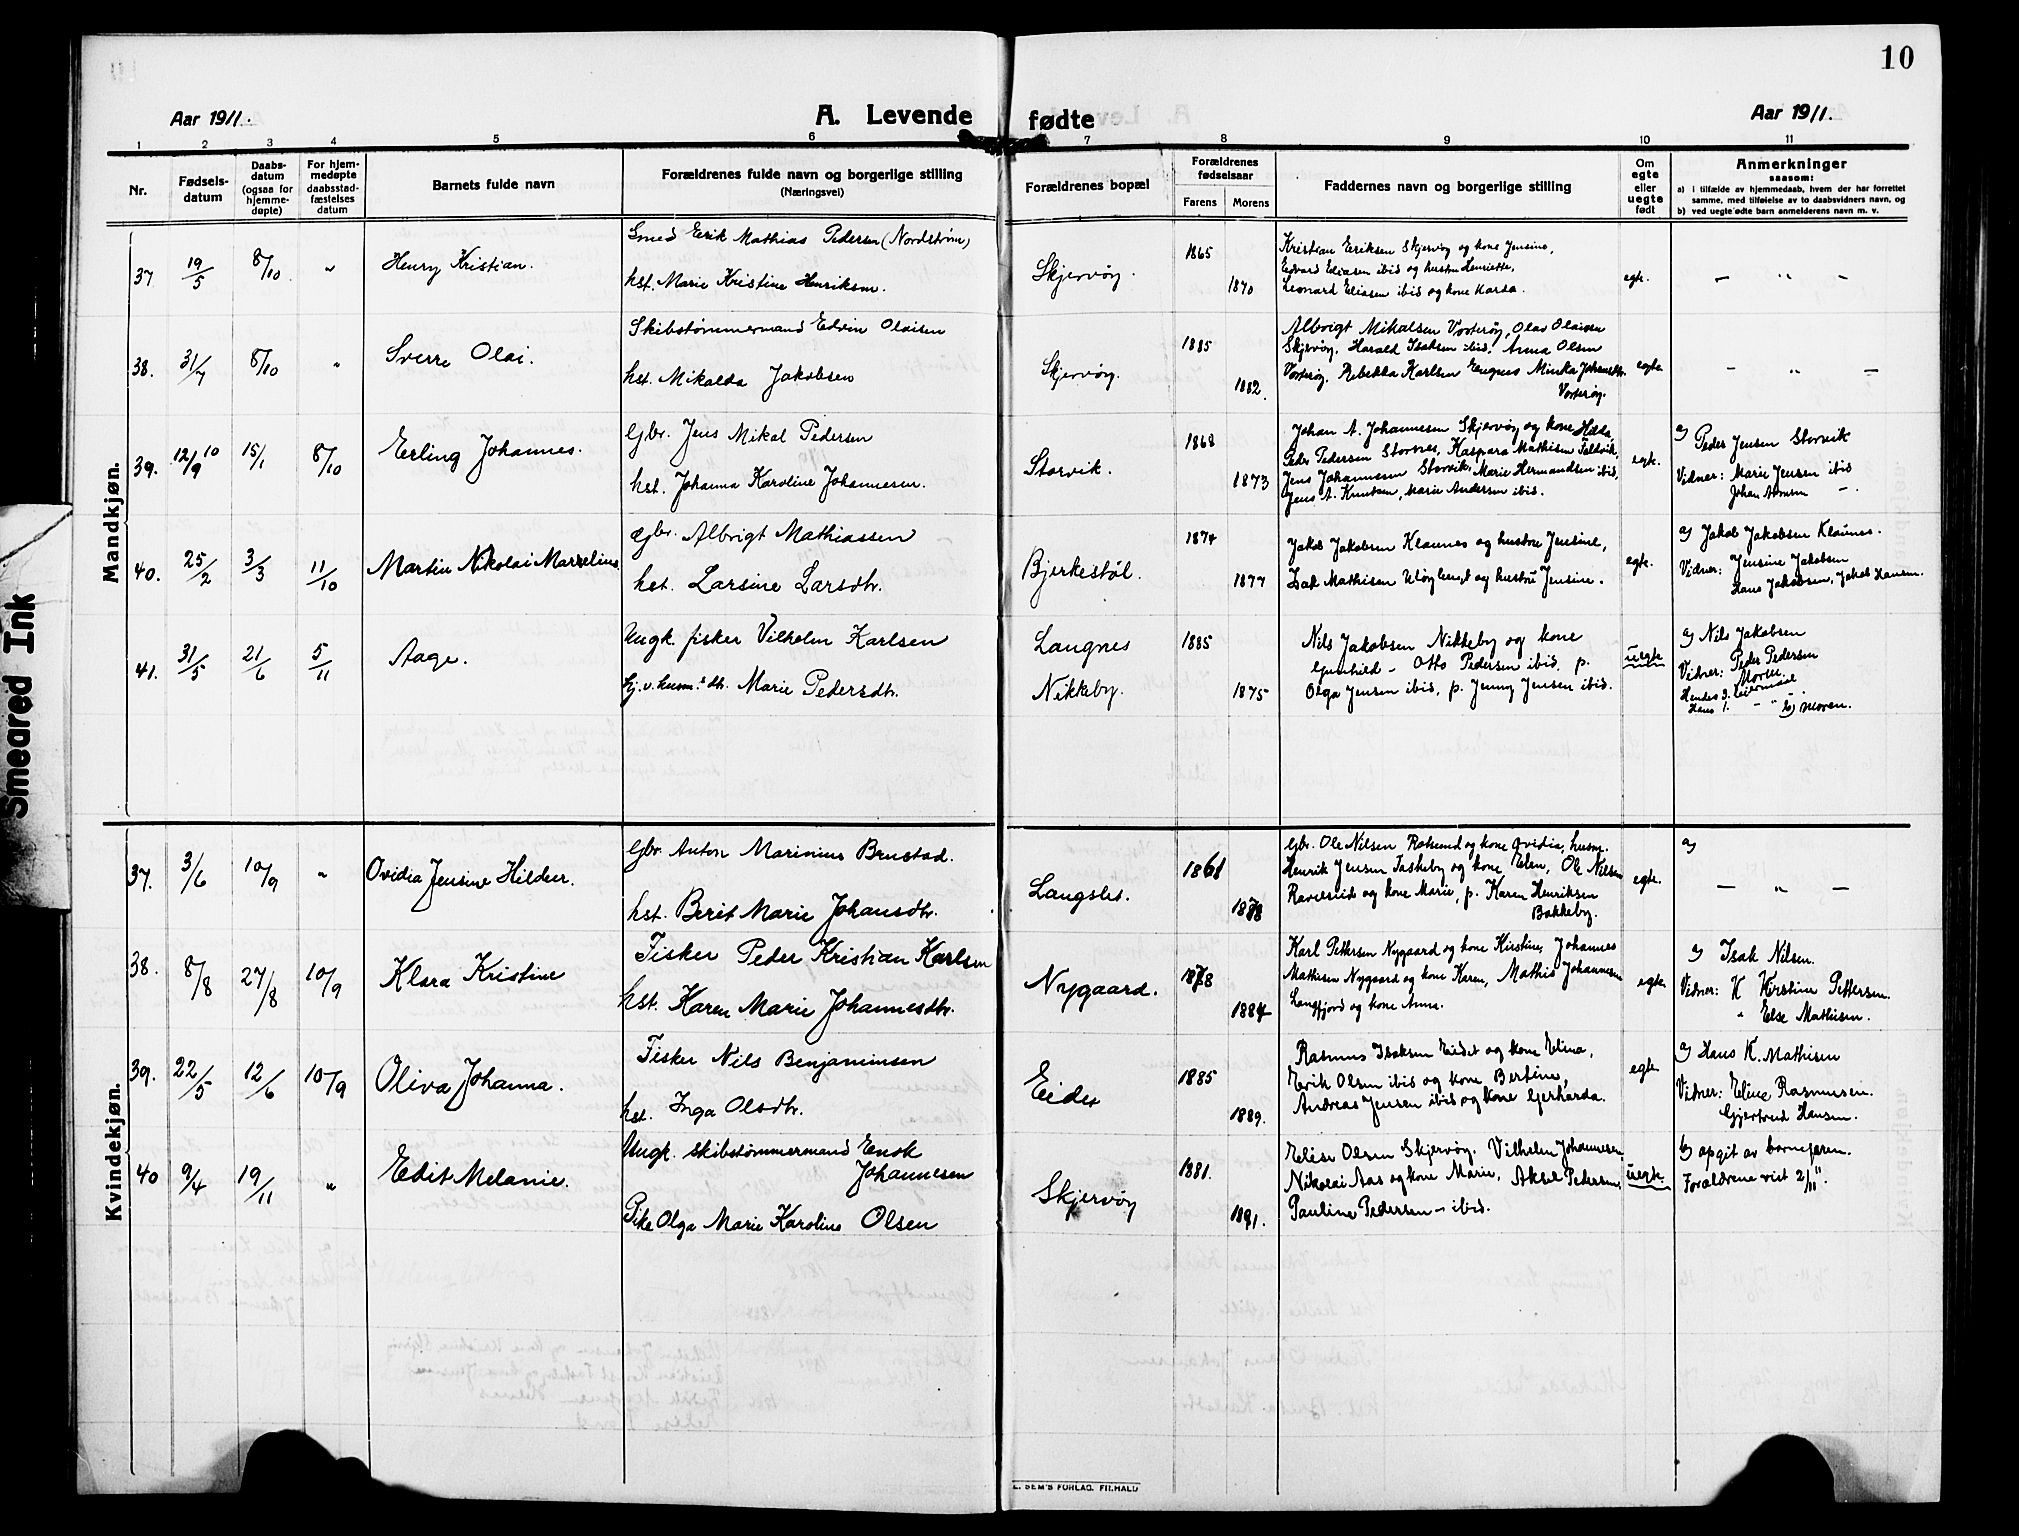 10
Aar 1911.
A. Levende
fødte
Aar 1911.
1 2 3 4 5 6 7 8 9 10 11
Nr.
Fødsels-
datum
Daabs-
datum
(ogsaa for
hjemme-
døpte)
For hjem-
medøpte
daabsstad-
fæstelses
datum
Barnets fulde navn
Forældrenes fulde navn og borgerlige stilling
(Næringsvei)
Forældrenes bopæl
Forældrenes
fødselsaar
Farens Morens
Faddernes navn og borgerlige stilling
Om
egte
eller
uegte
født
Anmerkninger
saasom:
a) i tilfælde av hjemmedaab, hvem der har forrettet
samme, med tilføielse av to daabsvidners navn, og
b) ved uegte ødte barn anmelderens navn m. v.
Mandkjøn.
37 19/5 8/10 " Henry Kristian.
Smed Erik Mathias Pedersen (Nordstrøm)
hst. Marie Kristine Henriksen.
Skjervøy.
1865
1870
Kristian Eriksen Skjervøy og kone Jensine,
Edvard Eliasen ibid og hustru Henriette,
Leonard Eliasen ibid og kone Harda.
egte.
— " —
38. 31/7 8/10 " Sverre Olai.
Skibstømmermand Edvin Olaisen
hst. Mikalda Jakobsen
Skjervøy.
1885
1882.
Albrigt Mikalsen Vorterøy, Olav Olaisen
Skjervøy, Harald Isaksen ibid, Anna Olsen
Vorterøy. Rebekka Karlsen Minka
Vorterøy.
egte.
— " —
39. 12/9 10 15/1 8/10 Erling Johannes.
Gbr. Jens Mikal Pedersen
hst. Johanna Karoline Johannesen.
Storvik.
1868
1873
Johan A. Johannesen Skjervøy og kone
Peder Pedersen Stornes, Kaspara Mathisen
Jens Johannesen Storvik, Marie Hermandsen ibid,
Jens A. Knutsen, Marie Andersen ibid.
egte.
a) Peder Jensen Storvik
Vidner: Marie Jensen ibid
Johan —.
40. 25/2 3/3 11/10 Martin Nikolai Marselius
Gbr. Albrigt Mathiassen
hst. Larsine Larsdtr.
Bjerkestøl.
1874
1877
Jakob Jakobsen Klaunes og hustru Jensine,
Isak Mathisen og hustru Jensine.
egte.
a) Jakob Jakobsen Klaunes.
Vidner: Jensine Jakobsen
Hans Jakobsen, Jakob Hansen.
41. 31/5 21/6 5/11 Aage.
Ungk. fisker Vilhelm Karlsen
hj. v. husm.s dtr. Marie Pedersdtr.
Langnes
Nikkeby.
1885
1875
Nils Jakobsen Nikkeby og kone
Gunhild — Otto Pedersen ibid. p.
Olga Jensen ibid, p. Jenny Jensen ibid.
uegte
a) Nils Jakobsen
Vidner: Peder Pedersen
Moren
Hendes 3. leiermaal
Hans 1. — " — b) Moren.
Kvindekjøn.
37. 3/6 10/9 " Ovidia Jensine Hildur.
Gbr. Anton Marinius Brustad.
hst. Berit Marie Johansdtr.
Langslet.
1861
1878
Gbr. Ole Nilsen Rotsund og kone Ovidia, husm.
Henrik Jensen Taskeby og kone Elen, Ole Nilsen
Ravelseid og kone Marie, p. Karen Henriksen
Bakkeby.
egte.
a)
— " —
38. 8/8 27/8 10/9 Klara Kristine
Fisker Peder Kristian Karlsen
hst. Karen Marie Johannesdtr.
Nygaard.
1878
1884
Karl Pettersen Nygaard og kone Kirstine, Johannes
Mathisen Nygaard og kone Karen, Mathis Johannesen
Langfjord og kone Anne.
egte
a) Isak Nilsen.
Vidner: K Kirstine Pettersen.
" Else Mathisen.
39. 22/5 12/6 10/9 Oliva Johanna.
Fisker Nils Benjaminsen
hst. Inga Olsdtr.
Eidet
1885
1889.
Rasmus Isaksen Eidet og kone Elina,
Erik Olsen ibid og kone Bertine,
Andreas Jensen ibid og kone Gerharda.
egte.
a) Hans K. Mathisen
Vidner: Eline Rasmussen.
Gjertrud Hansen.
40 9/4 19/11 " Edit Melanie.
Ungk. skibstømmermand Enok
Johannesen
Pike Olga Marie Karoline Olsen
Skjervøy
1881.
1891.
Elise Olsen Skjervøy. Vilhelm Johannesen,
Nikolai Aas og kone Marie, Aksel Pedersen,
Pauline Pedersen — ibid.
uegte.
b) opgit av barnefaren.
Forældrene viet 2/11 11.
Smeared Ink
E. SEM'S FORLAG. FR.HALD